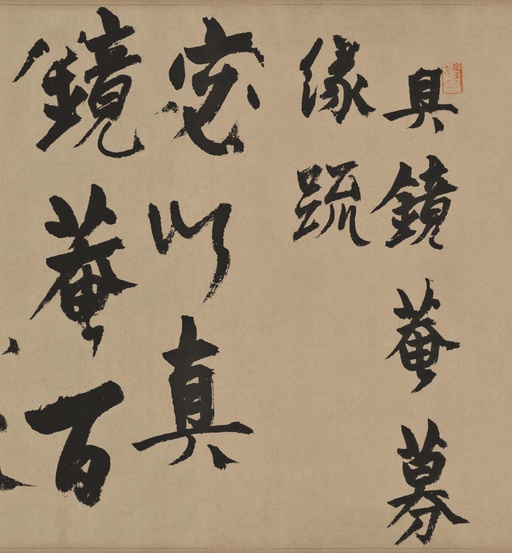 具鏡菴募
緣疏
窃以真
鏡菴百